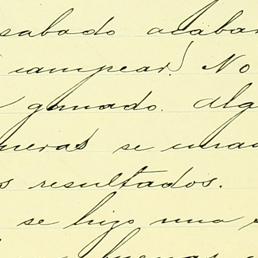 sabado acabar
campear! No
ganado. Alg
neras se
s resultados.
se hizo una